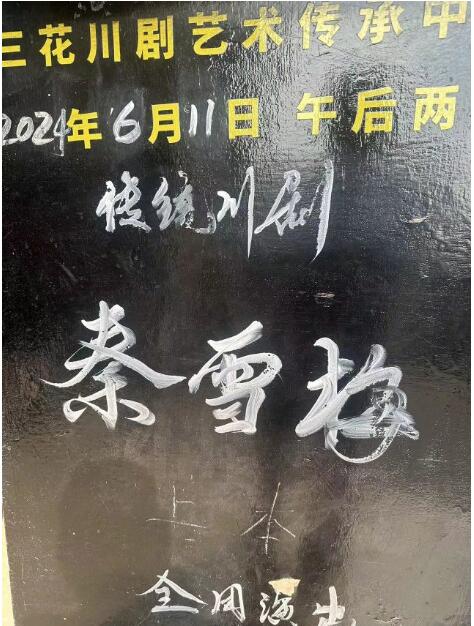 三花川剧艺术传承中
2024年6月11日 午后两
传统川剧
秦雪梅
上本
全团演出